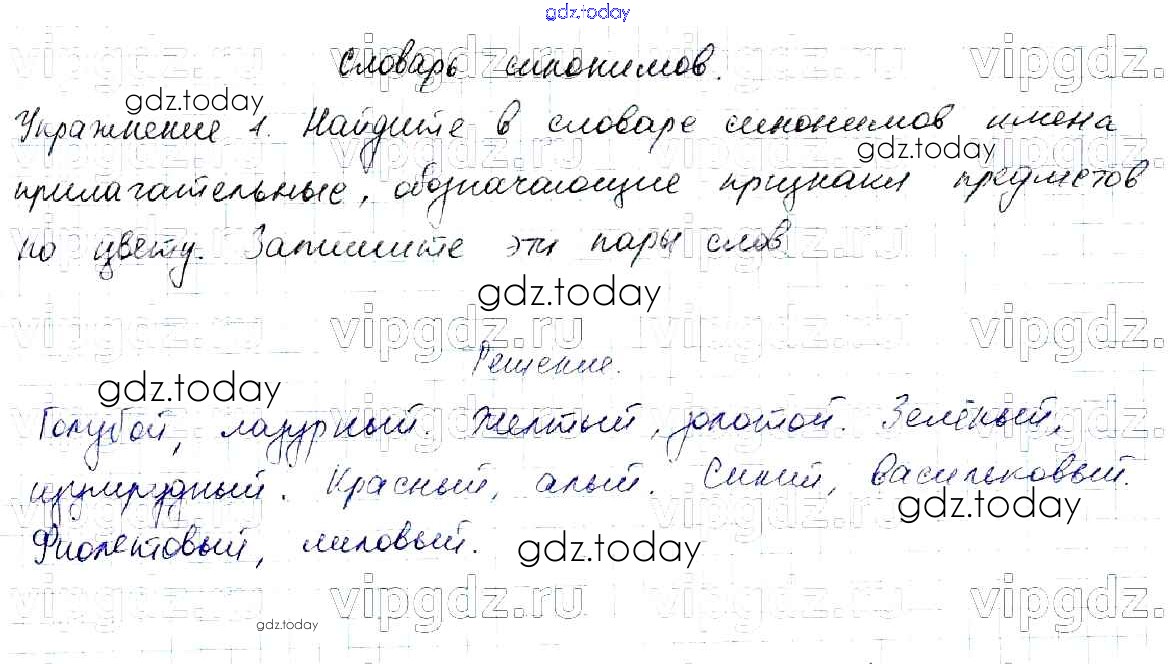 gdz.today
Словарь синонимов.
gdz.today
Упражнение 1. Найдите в словаре синонимов имена
gdz.today
прилагательные, обозначающие признаки предметов
по цвету. Запишите эти пары слов
gdz.today
vipgdz.ru vipgdz.ru vipgdz.ru vipgdz.ru
Решение.
gdz.today
Голубой, лазурный. Желтый, золотой. Зелёный,
изумрудный. Красный, алый. Синий, васильковый.
gdz.today
Фиолетовый, лиловый.
gdz.today
vipgdz.ru vipgdz.ru vipgdz.ru vipgdz.ru
gdz.today